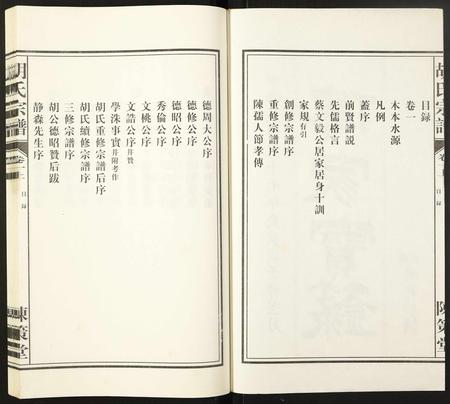 胡氏宗譜
卷一上
陳策堂
目録
卷一
木本水源
凡例
蓋序
前賢譜説
先儒格言
蔡文毅公居家居身十訓
家規有引
創修宗譜序
重修宗譜序
陳孺人節孝傳
德周大公序
德修公序
德昭公序
秀倫公序
文桃公序
文誥公序并贊
學洙事實并附考作
胡氏重修宗譜后序
胡氏續修宗譜序
三修宗譜序
胡公德昭贊后跋
静森先生序
胡氏宗譜
卷一上
目録
陳策堂